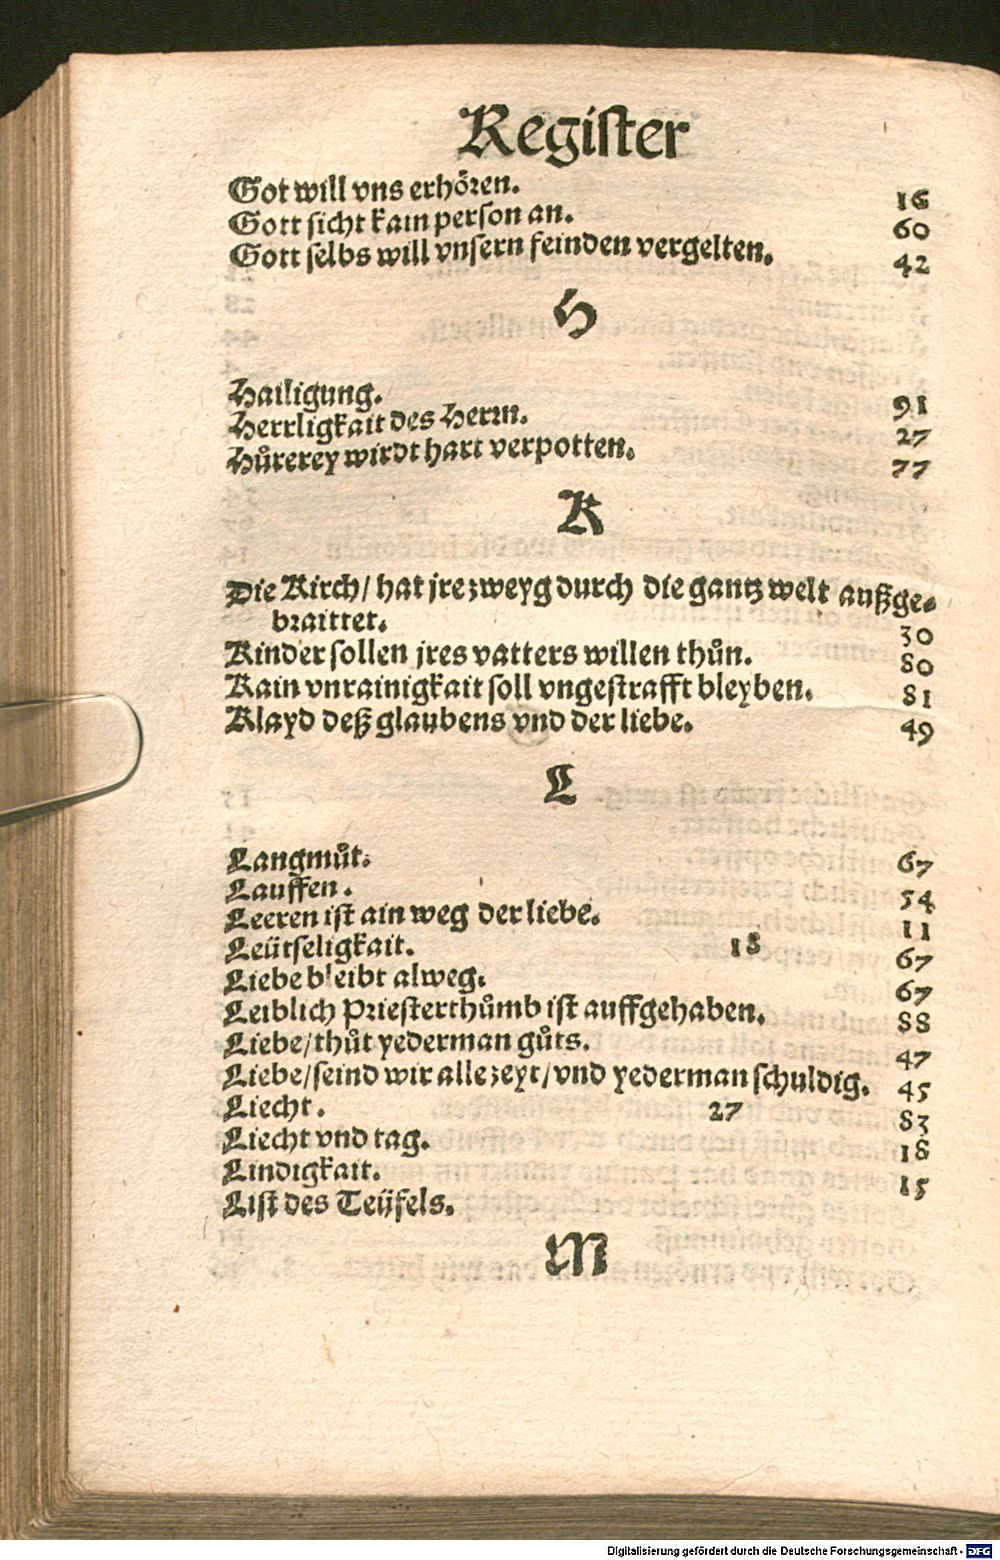 Regiſter
Got will vns erhören. 16
Gott ſicht kain perſon an. 60
Gott ſelbs will vnſern feinden vergelten. 42
H
Hailigung. 91
Herrligkait des Herrn. 27
Hůrerey wirdt hart verpotten. 77
K
Die Kirch/ hat jre zweyg durch die gantz welt außge-
braittet. 30
Kinder ſollen jres vatters willen thůn. 80
Kain vnrainigkait ſoll vngeſtrafft bleyben. 81
Klayd deß glaubens vnd der liebe. 49
L
Langmůt. 67
Lauffen. 54
Leeren iſt ain weg der liebe. 11
Leütſeligkait. 18 67
Liebe bleibt alweg. 67
Leiblich Prieſterthůmb iſt auffgehaben. 88
Liebe/thůt yederman gůts. 47
Liebe/ſeind wir alle zeyt/vnd yederman ſchuldig. 45
Liecht. 27 83
Liecht vnd tag. 18
Lindigkait. 15
Liſt des Teüfels.
M
Digitalisierung gefördert durch die Deutsche Forschungsgemeinschaft - DFG